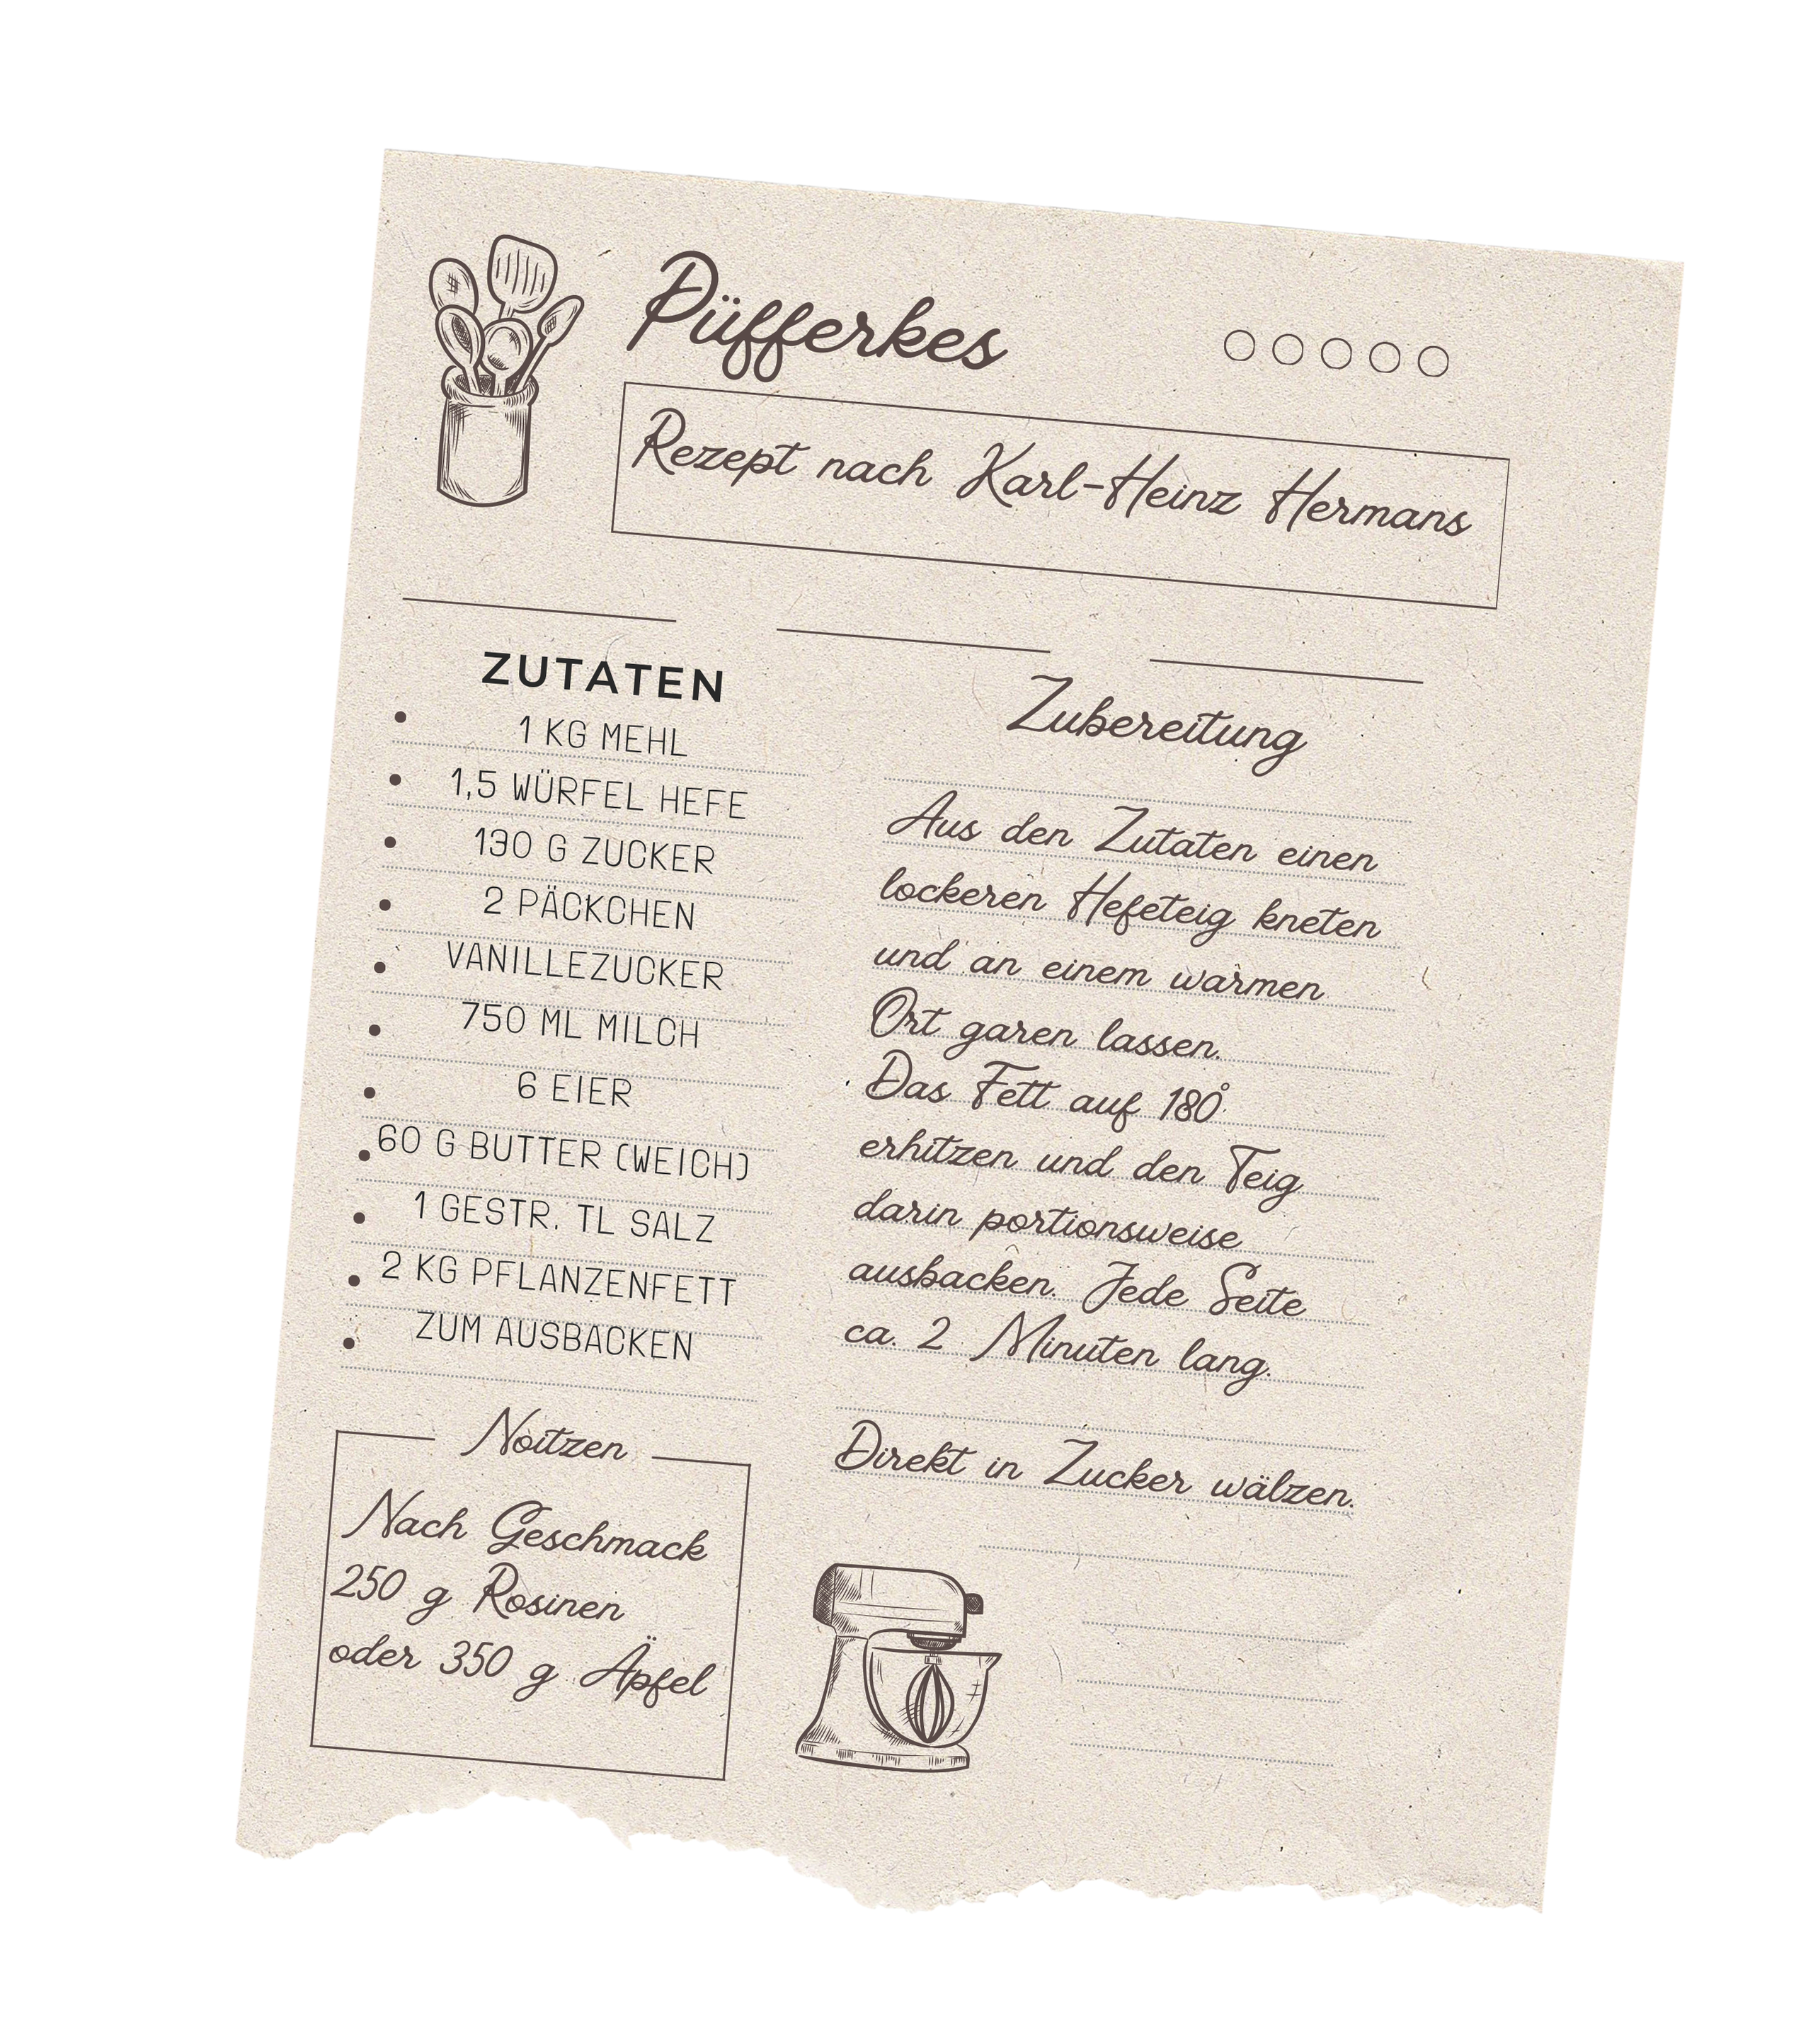 Püfferkes
Rezept nach Karl-Heinz Hermans
ZUTATEN
1 KG MEHL
1,5 WÜRFEL HEFE
130 G ZUCKER
2 PÄCKCHEN
VANILLEZUCKER
750 ML MILCH
6 EIER
60 G BUTTER (WEICH)
1 GESTR. TL SALZ
2 KG PFLANZENFETT
ZUM AUSBACKEN
Noitzen
Nach Geschmack
250 g Rosinen
oder 350 g Äpfel
Zubereitung
Aus den Zutaten einen
lockeren Hefeteig kneten
und an einem warmen
Ort garen lassen.
Das Fett auf 180°
erhitzen und den Teig
darin portionsweise
ausbacken. Jede Seite
ca. 2 Minuten lang.
Direkt in Zucker wälzen.